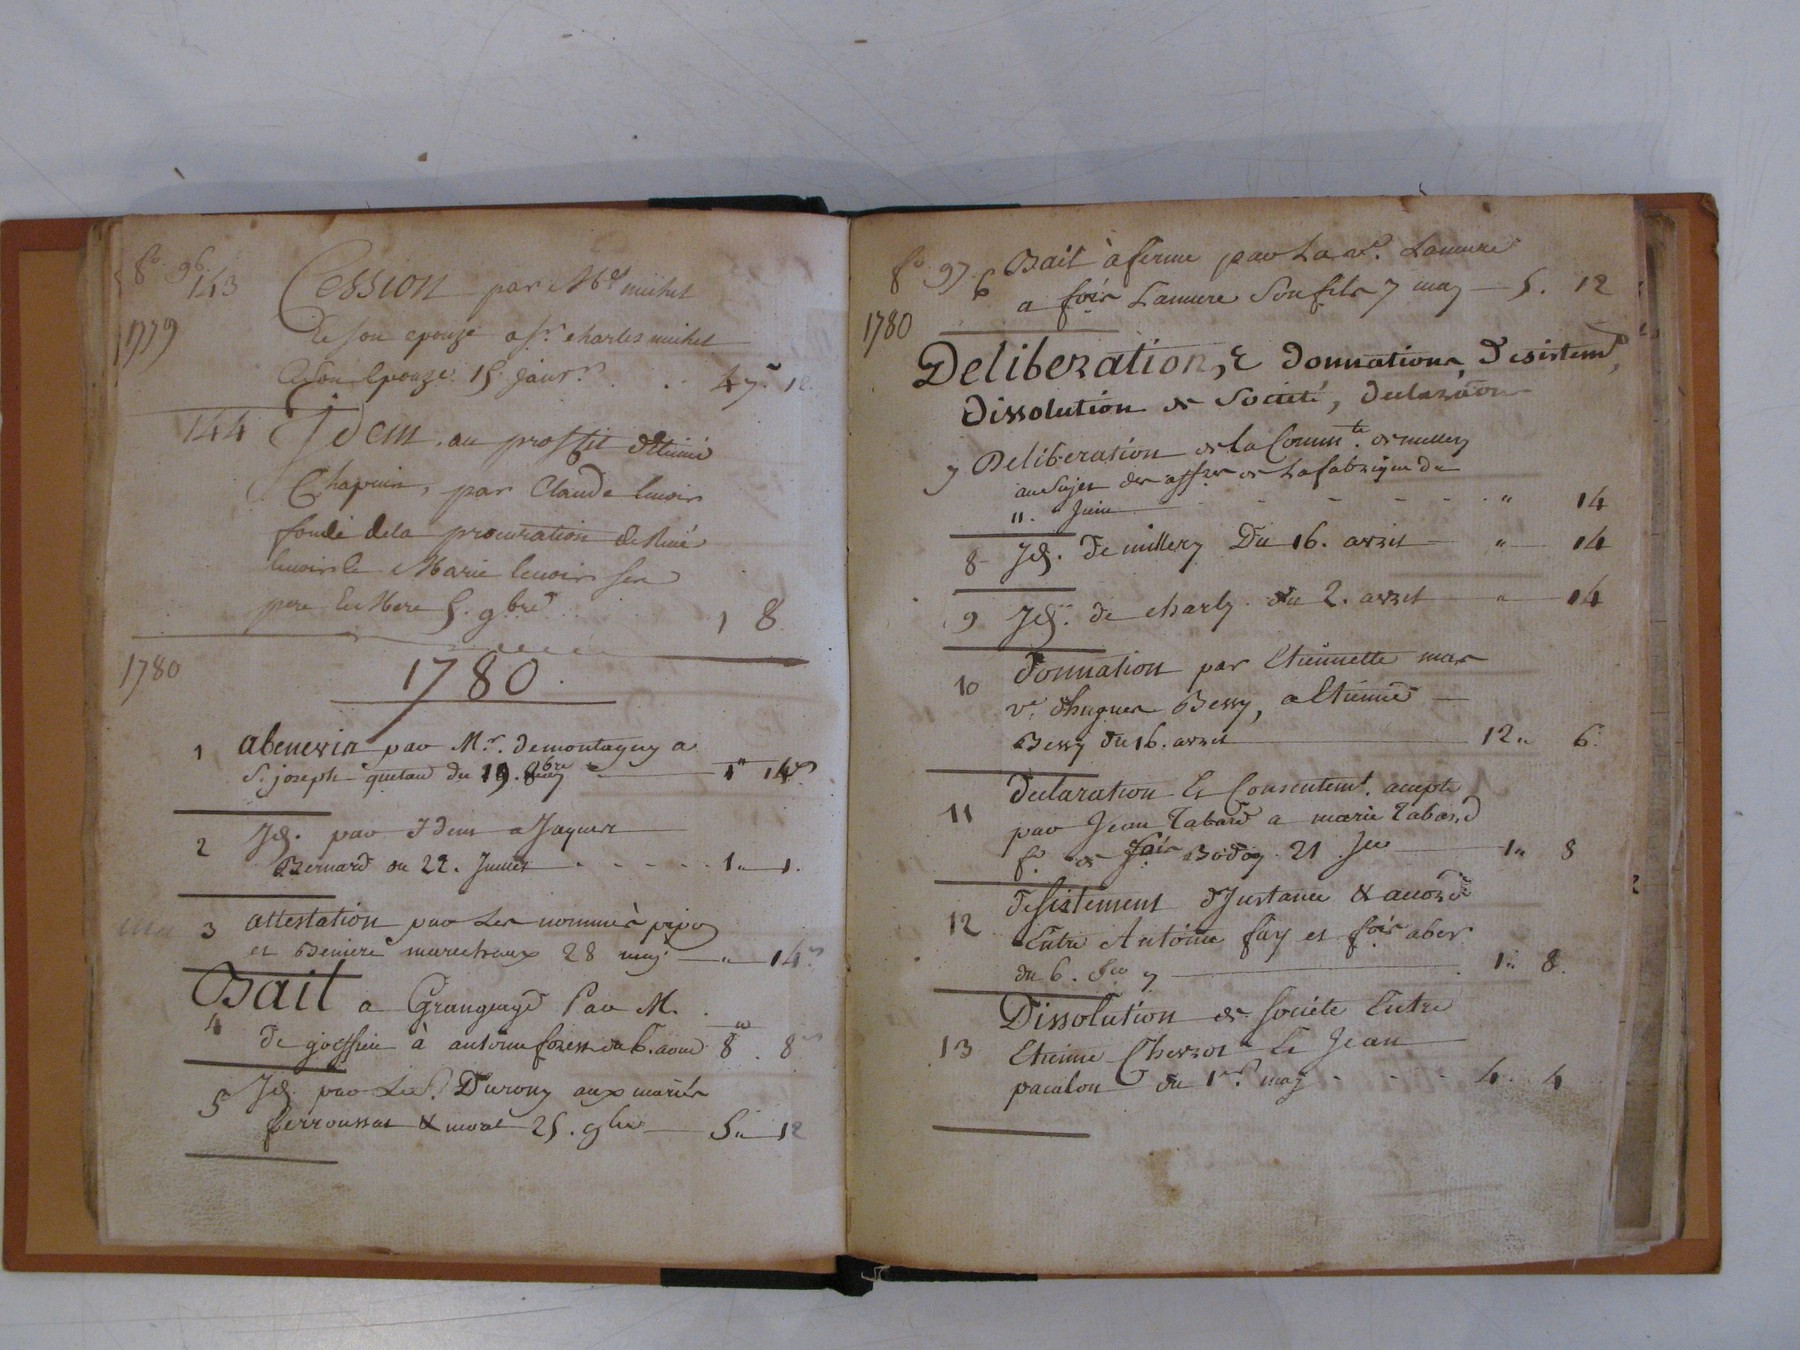 fo. 96.
143 Cession par Md michel
1779
de son epouze a sr. charles michel
15 janvr. 47 12
144 Idem, au proffit
Chapuis, par Claude lenoir
fondé de la procuration
lenoir & Marie lenoir ses
pere & Mere 5. 9bre 1 8
1780
1780.
1 abenevis par Mr. demontagny a
St. joseph du 19. 8bre 1" 14
2 Id. par Idem a Jaques
Bernard du 22. Juillet 1" 1.
3 attestation par les nommés
et marechaux 28 may " 14
Bail a Grangeage Par M.
4 de à antoine aoust 8" 8
5 Id. par Durony aux mariés
ferroussat & morat 25. 9bre 5" 12
fo. 97
6 Bail à ferme par La ve. Lamure
a fois Lamure son fils 7 may 5. 12
1780
Deliberation, & donnation, Desistemt,
Dissolution de Societé, declaration
7 Deliberation de la Commté. de millery
au sujet des de La fabrique du
11. Juin " 14
8 Id. de millery Du 16. avril " 14
9 Id. de charly du 2. avril " 14
10 donnation par Etiennette
ve. d'hugues Bessy, a Etienne
Bessy du 16. avril 12" 6.
11 declaration & Consentemt. accepté
par Jean Tabard a marie Tabard
fe. de 21 1" 8
12 desistement d'Instance & accord
Entre Antoine fay et fois
du 6. 1" 8.
Dissolution de societé Entre
13 Etienne & Jean
pacalon du 1er. may 4. 4